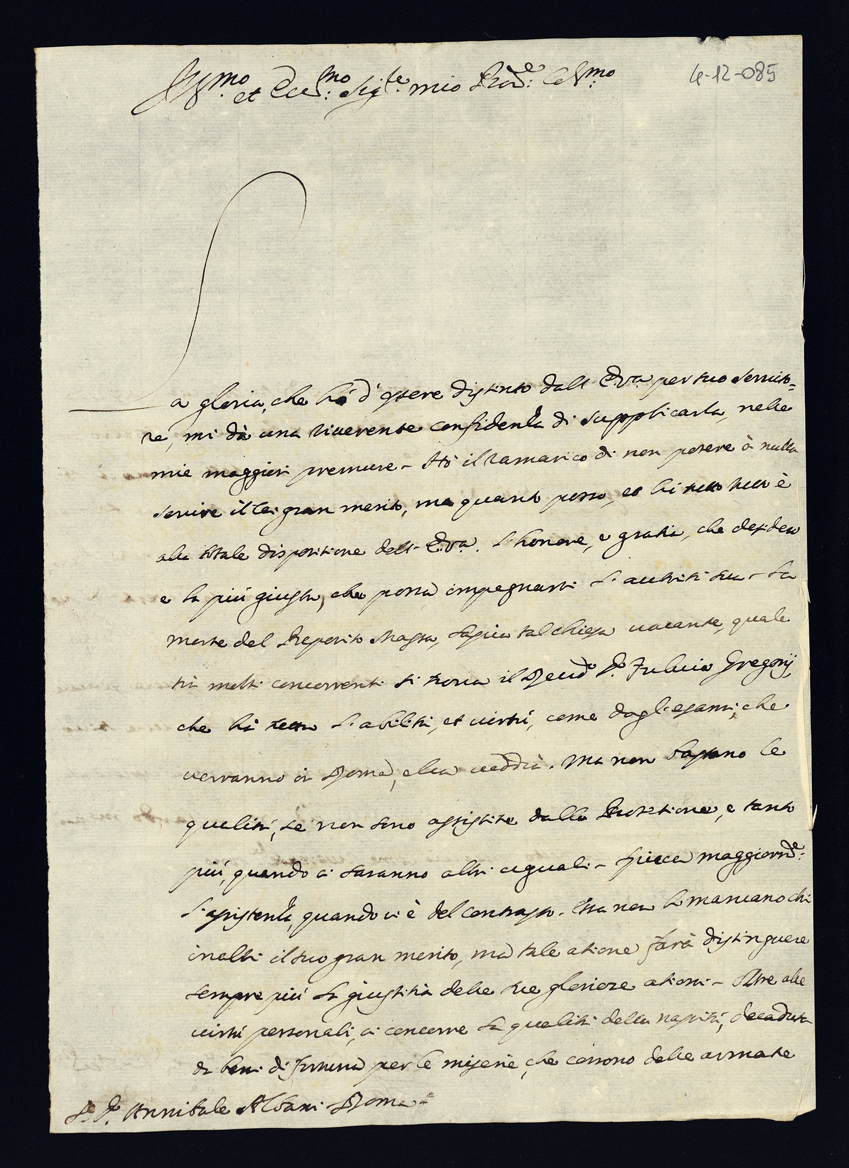 4-12-085
Ill.mo et Ecc.mo Sig.re mio P.ron: Col.mo
La gloria, che hò d'essere distinto dall'E. V.ra per suo servito=
re, mi dà una riverente confidenza di supplicarla, nelle
mie maggiori premure - Hò il ramarico di non potere à nulla
servire il lei gran merito, ma quanto posso, et hò tutto è
alla totale dispositione dell'E. V.ra. L'honore, e gratia, che desidero
e la più giusta, che possa impegnarsi l'autorità sua - La
morte del Preposito lascia tal chiesa vacante, quale
trà molti concorrenti si trova il Rever.do D. Fulvio Gregorij
che hà tutta l'abilità, et virtù, come dagl'esami, che
verranno in Roma, ella vedrà. Ma non bastano le
qualità, se non sono assistite dalla Protetione, e tanto
più, quando ci saranno altri eguali - spicca maggiorm.te:
l'assistenza, quando vi è del contrasto. Ma non mancano chi
il suo gran merito, ma tale atione farà distinguere
sempre più la giustitia delle sue gloriose ationi - Oltre alle
virtù personali, ci concorre la qualità della nascità, decaduta
da beni di fortuna per le miserie, che corrono delle armate
S.r D. Annibale Albani Roma